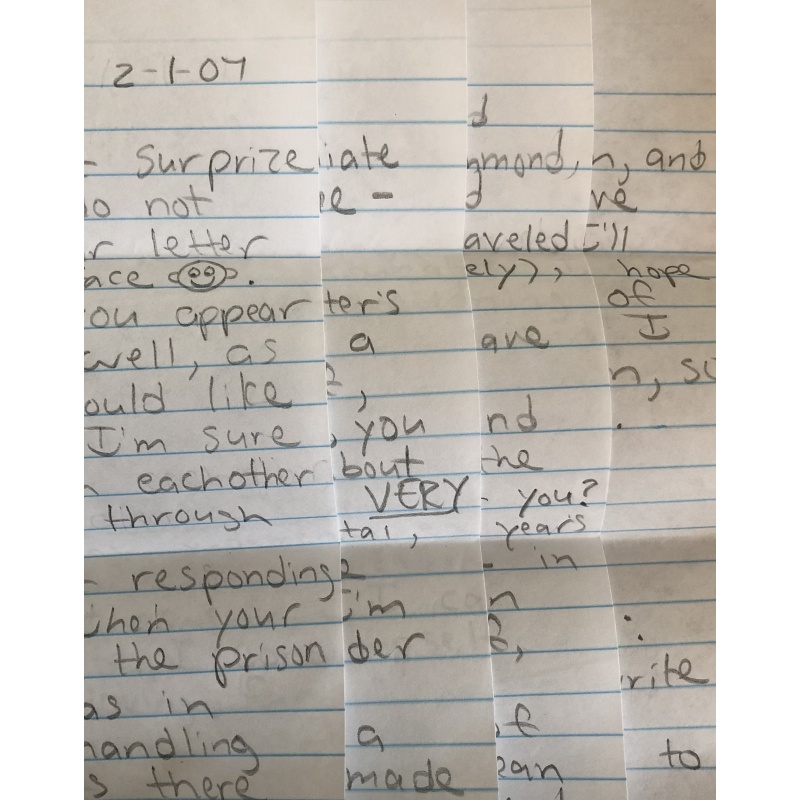 2-1-07
d
- Surprize iate mond, n, and
o not e - d ve
r letter aveled I'll
ace . ely), hope
ou appear ter's of
well, as a ave I
ould like , n, so
I'm sure , you nd .
eachother bout he
through VERY - you?
tal, years
- responding - in
your I'm n
the prison der , :
rite
as in
andling a
s there made ean to